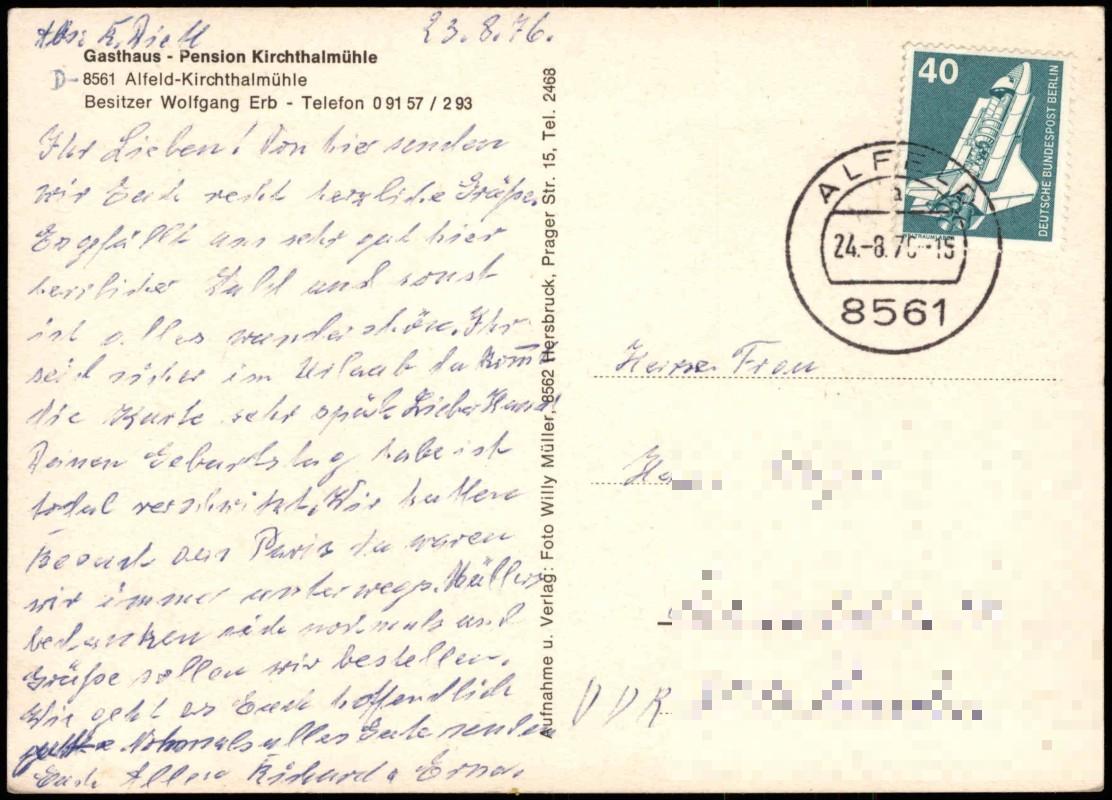 Abs: R. Diell
23.8.76.
Gasthaus - Pension Kirchthalmühle
D-8561 Alfeld-Kirchthalmühle
Besitzer Wolfgang Erb - Telefon 0 91 57 / 2 93
Ihr Lieben! Von hier senden
wir Euch recht herzliche Grüße.
Es gefällt uns sehr gut hier
herrlicher Wald und sonst
ist alles wunderschön. Ihr
seid sicher im Urlaub da kommt
die Karte sehr spät. Lieber
Deinen Geburtstag habe ich
total verschwitzt. Wir hatten
Besuch aus Paris da waren
wir immer unterwegs. Müllers
bedanken sich nochmals und
Grüße sollen wir bestellen.
Wie geht es Euch hoffentlich
Nochmals alles Gute senden
Euch Allen Richard & Erna.
Aufnahme u. Verlag: Foto Willy Müller, 8562 Hersbruck, Prager Str. 15, Tel. 2468
40
DEUTSCHE BUNDESPOST BERLIN
ALFELD
a
24.-8.76-15
8561
Herrn Frau
DDR